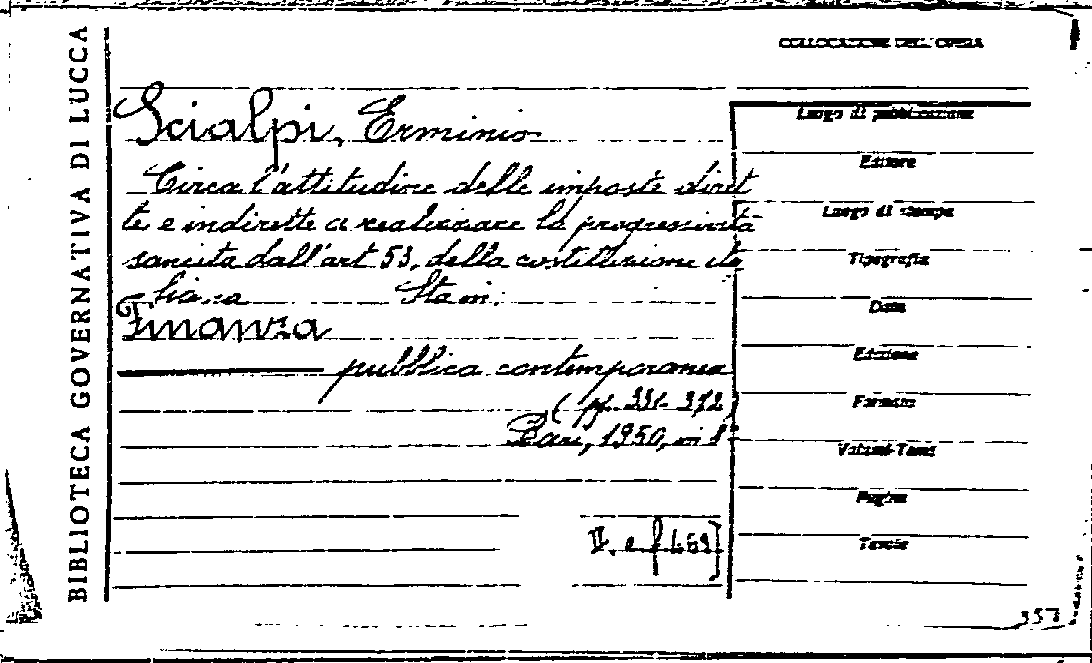 BIBLIOTECA GOVERNATIVA DI LUCCA
COLLOCAZIONE DELL'OPERA
Scialpi, Erminio
Circa l'attitudine delle imposte diret
te e indirette a realizzare la progressività
sancita dall'art 53. della costituzione ita
liana
Finanza
pubblica contemporanea
(pp. 331-372)
Bari, 1950, in 8°
Luogo di pubblicazione
Editore
Luogo di stampa
Tipografia
Data
Edizione
Formato
Volumi-Tomi
Pagine
Tavole
357